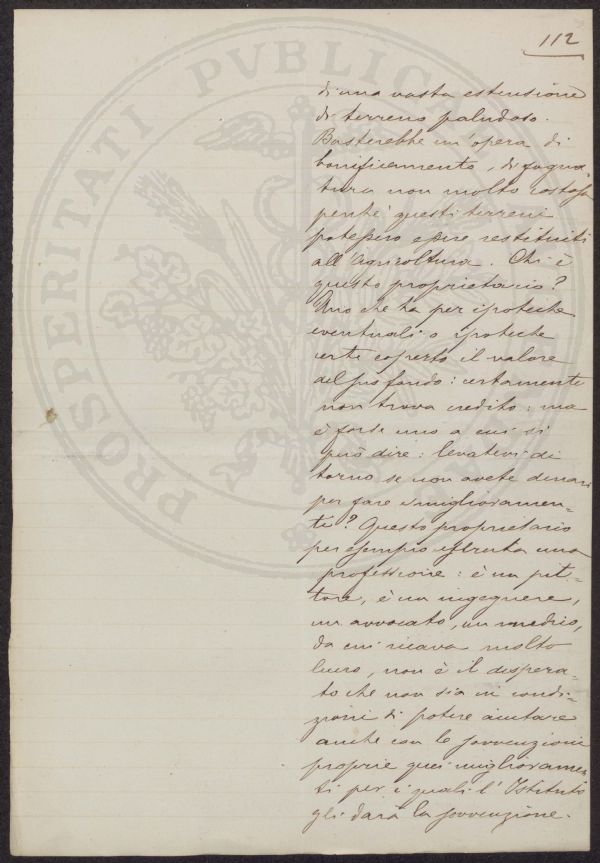 112
di una vasta estensione
di terreno paludoso.
Basterebbe un'opera di
bonificamento, di fogna-
tura non molto costosa
perchè questi terreni
potessero essere restituiti
all'agricoltura. Chi è
questo proprietario?
Uno che ha per ipoteche
eventuali o ipoteche
certe coperto il valore
del suo fondo: certamente
non trova credito; ma
è forse uno a cui si
può dire: levatevi di
torno se non avete denari
per fare i miglioramen-
ti? Questo proprietario
per esempio esercita una
professione: è un pit-
tore, è un ingegnere,
un avvocato, un medico,
da cui ricava molto
lucro, non è il dispera-
to che non sia in condi-
zioni di potere aiutare
anche con le sovvenzioni
proprie quei miglioramen
ti per i quali l'Istituto
gli darà la sovvenzione.
PROSPERITATI PVBLICAE